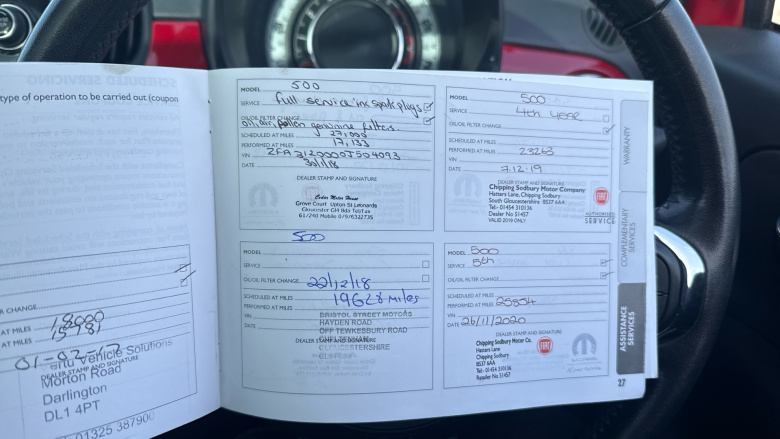 type of operation to be carried out (coupon
R CHANGE
AT MILES 18000
AT MILES
01-02-17
Vehicle Solutions
DEALER STAMP AND SIGNATURE
Morton Road
Darlington
DL1 4PT
01325 387900
MODEL 500
SERVICE full service inc spark plugs
OIL/OIL FILTER CHANGE
oil, air, pollen genuine filters.
SCHEDULED AT MILES 27,000
PERFORMED AT MILES 17,133
VIN ZFA3120000J504093
DATE 30/1/18
DEALER STAMP AND SIGNATURE
Cedar Motor House
Grove Court Upton St Leonards
Gloucester
500
MODEL
SERVICE
OIL/OIL FILTER CHANGE 22/12/18
SCHEDULED AT MILES
PERFORMED AT MILES 19628 Miles
VIN
DATE
BRISTOL STREET MOTORS
HAYDEN ROAD
OFF TEWKESBURY ROAD
DEALER STAMP AND SIGNATURE
CHELTENHAM
GLOUCESTERSHIRE
MODEL 500
SERVICE 4th YEAR
OIL/OIL FILTER CHANGE
SCHEDULED AT MILES
PERFORMED AT MILES 23263
VIN
DATE 7.12.19
DEALER STAMP AND SIGNATURE
Chipping Sodbury Motor Company
Hatters Lane, Chipping Sodbury
South Gloucestershire BS37 6AA
Tel:- 01454 310136
Dealer No 51457
VALID 2019 ONLY
FIAT
AUTHORISED
SERVICE
MODEL 500
SERVICE 5th
OIL/OIL FILTER CHANGE
SCHEDULED AT MILES
PERFORMED AT MILES 25854
VIN
DATE 26/11/2020
DEALER STAMP AND SIGNATURE
Chipping Sodbury Motor Co.
Hatters Lane
Chipping Sodbury
BS37 6AA
Tel:- 01454 310136
Retailer No 51457
FIAT
WARRANTY
COMPLEMENTARY SERVICES
ASSISTANCE SERVICES
27